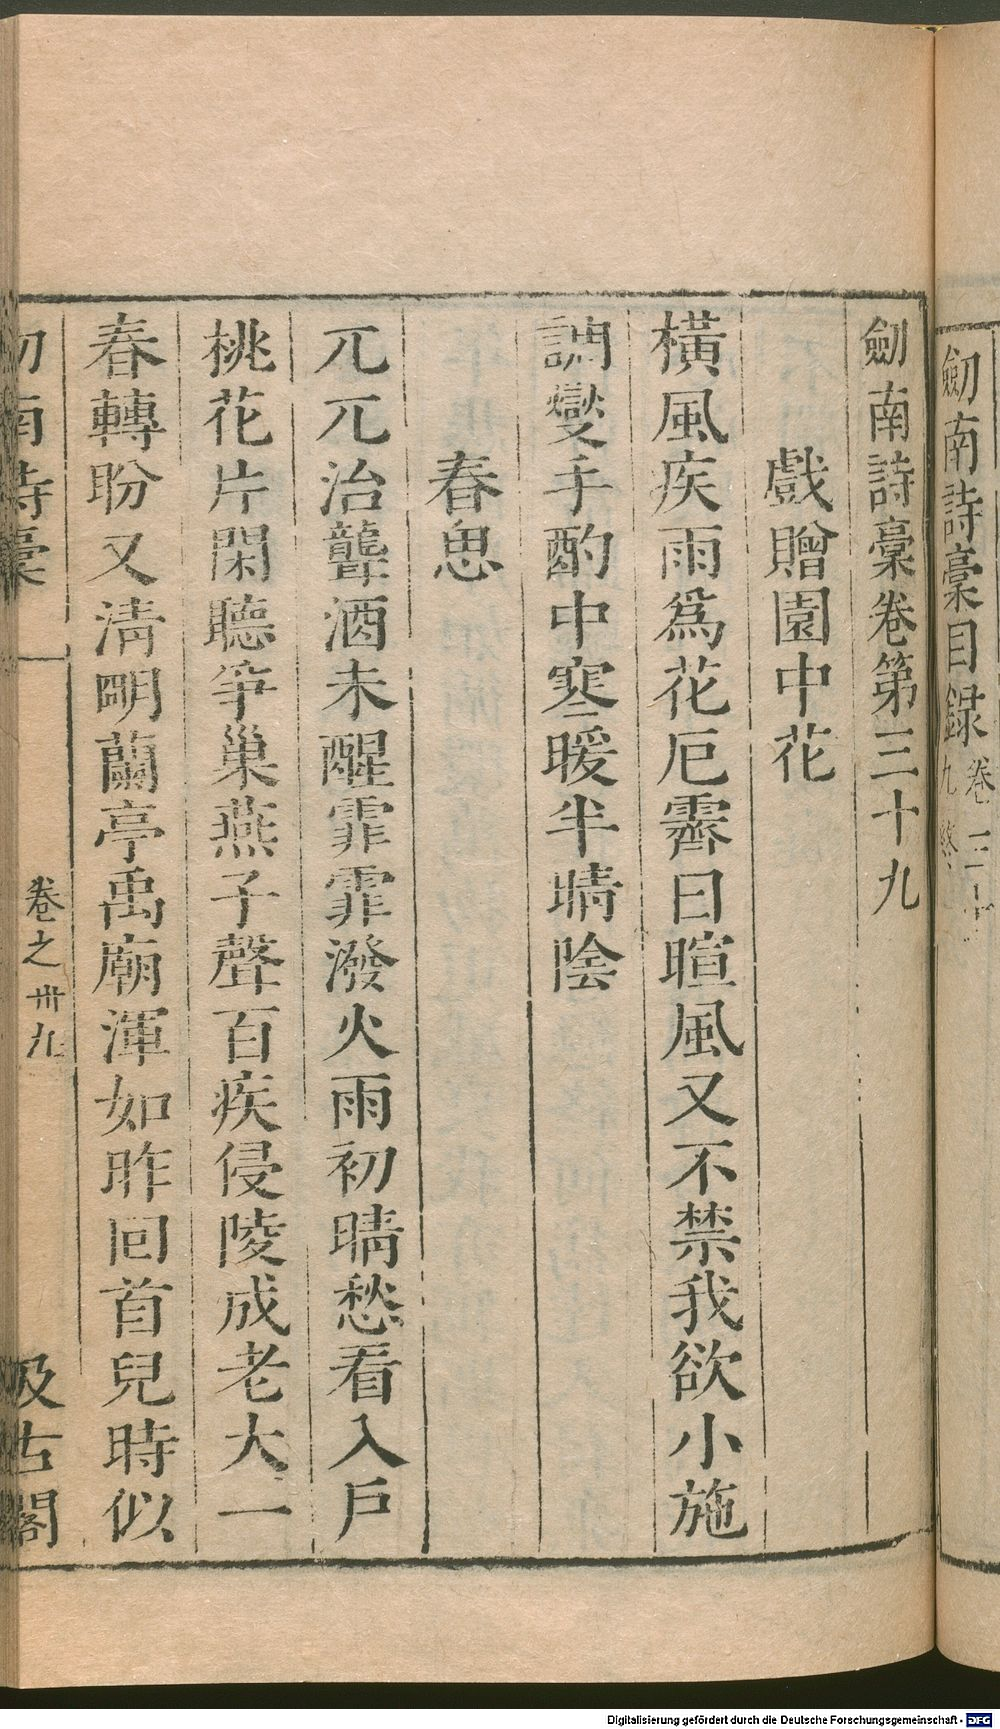 劎南詩稾目録
卷三十
九終
劎南詩稾卷第三十九
戲贈園中花
橫風疾雨爲花厄霽日暄風又不禁我欲小施
調爕手酌中寒暖半晴陰
春思
兀兀治聾酒未醒霏霏潑火雨初晴愁看入戶
桃花片閑聽爭巢燕子聲百疾侵陵成老大一
春轉盻又淸明蘭亭禹廟渾如昨回首兒時似
劎南詩稾
卷之卅九
汲古閣
Digitalisierung gefördert durch die Deutsche Forschungsgemeinschaft - DFG